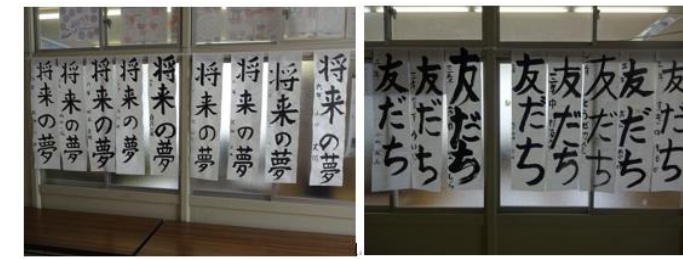 将来の夢
将来の夢
将来の夢
将来の夢
将来の夢
将来の夢
将来の夢
将来の夢
将来の夢
友だち
友だち
友だち
友だち
友だち
友だち
友だち
友だち